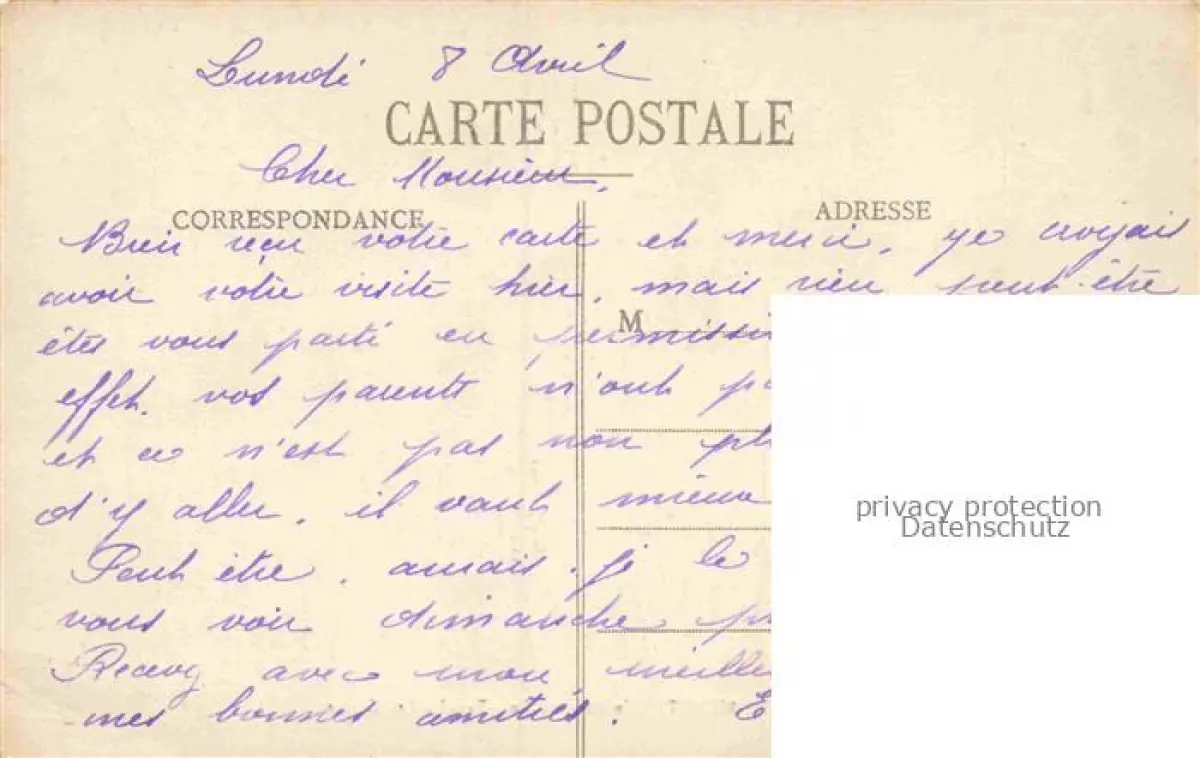 Lundi 8 Avril
CARTE POSTALE
Cher Monsieur,
CORRESPONDANCE
ADRESSE
Bien reçu votre carte et merci, je croyais
avoir votre visite hier, mais rien peut-être
M
êtes vous parti en permissi
effet. vos parents n'ont p
et ce n'est pas non pl
d'y aller. il vaut mieux
Peut être. aurais. je le
vous voir dimanche pr
Recevez avec mon meille
mes bonnes amitiés. E
privacy protection
Datenschutz